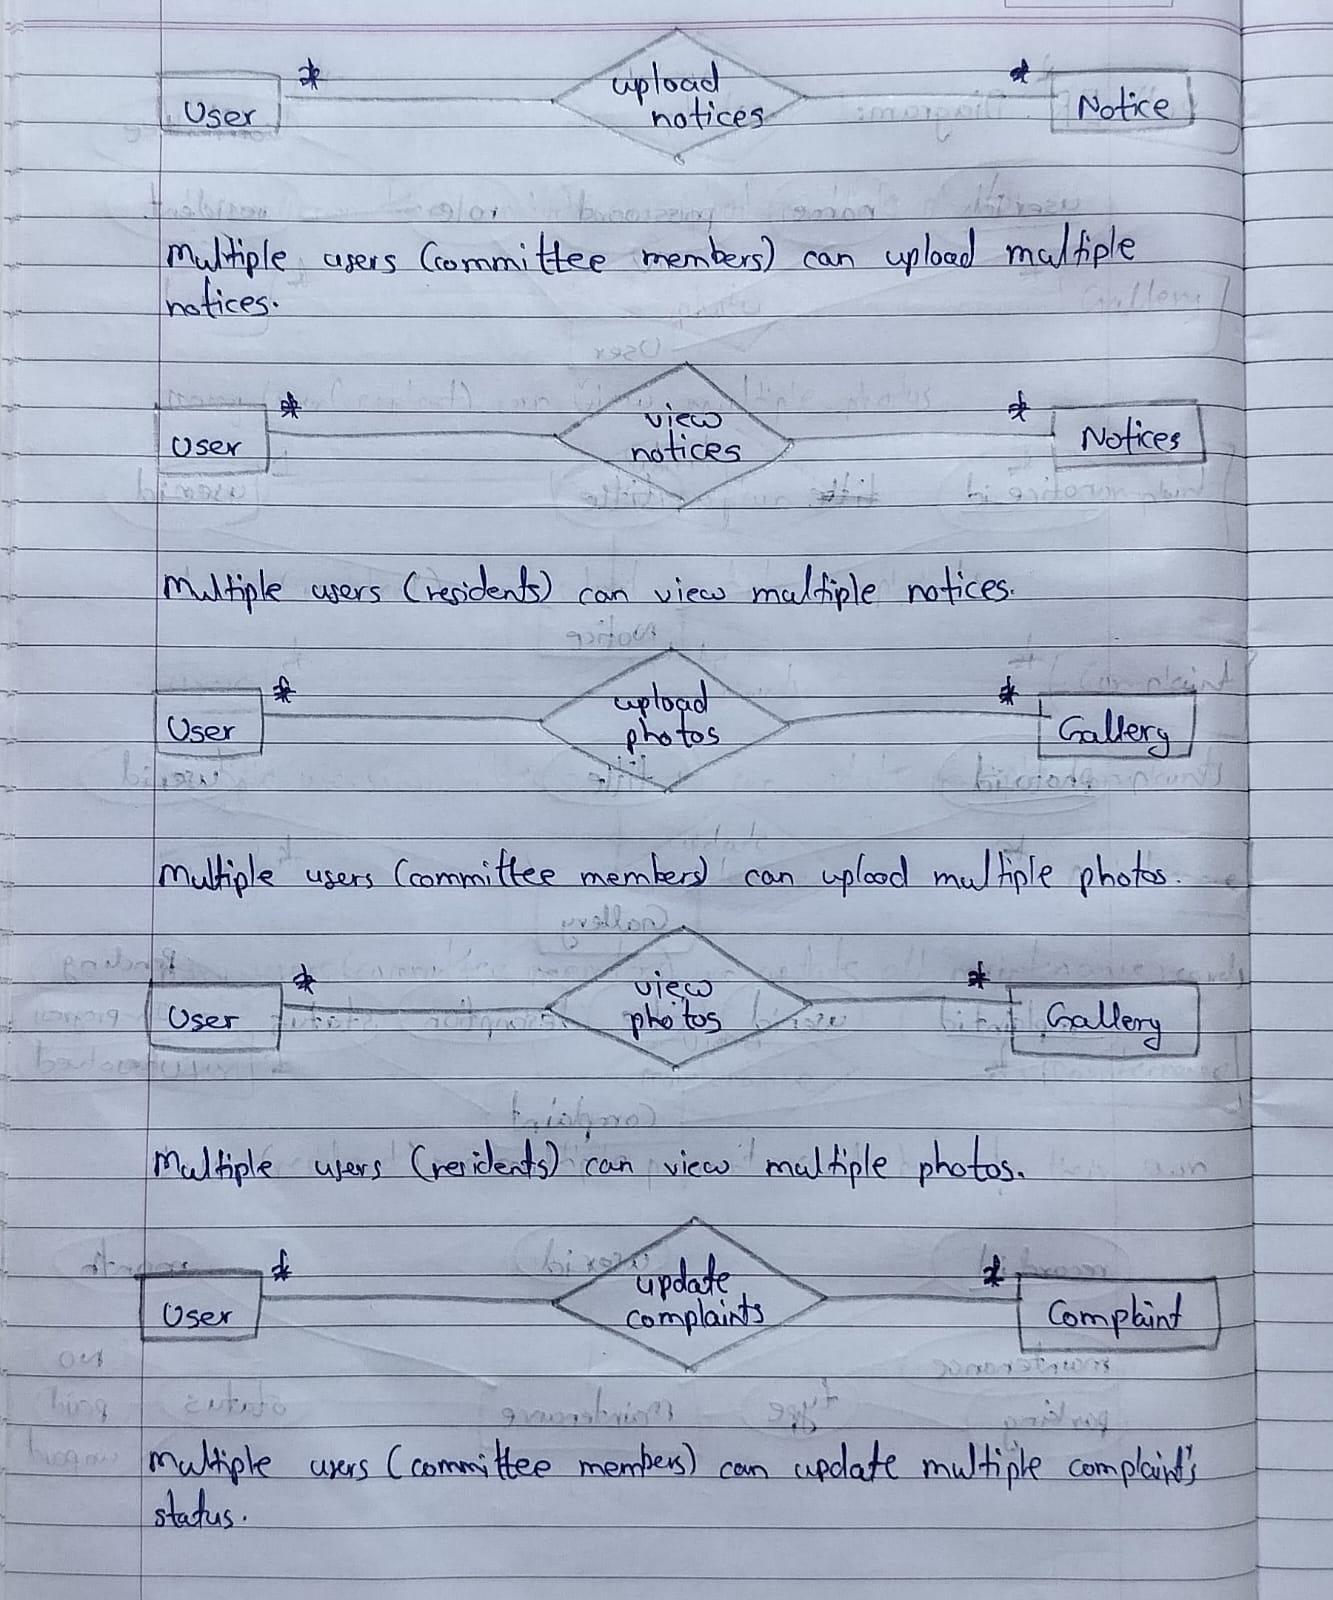 * *
User upload Notice
notices
Multiple users (committee members) can upload multiple
notices.
* *
User view Notices
notices
Multiple users (residents) can view multiple notices.
* *
User upload Gallery
photos
Multiple users (committee members) can upload multiple photos.
* *
User view Gallery
photos
Multiple users (residents) can view multiple photos.
* *
User update Complaint
complaints
Multiple users (committee members) can update multiple complaint's
status.